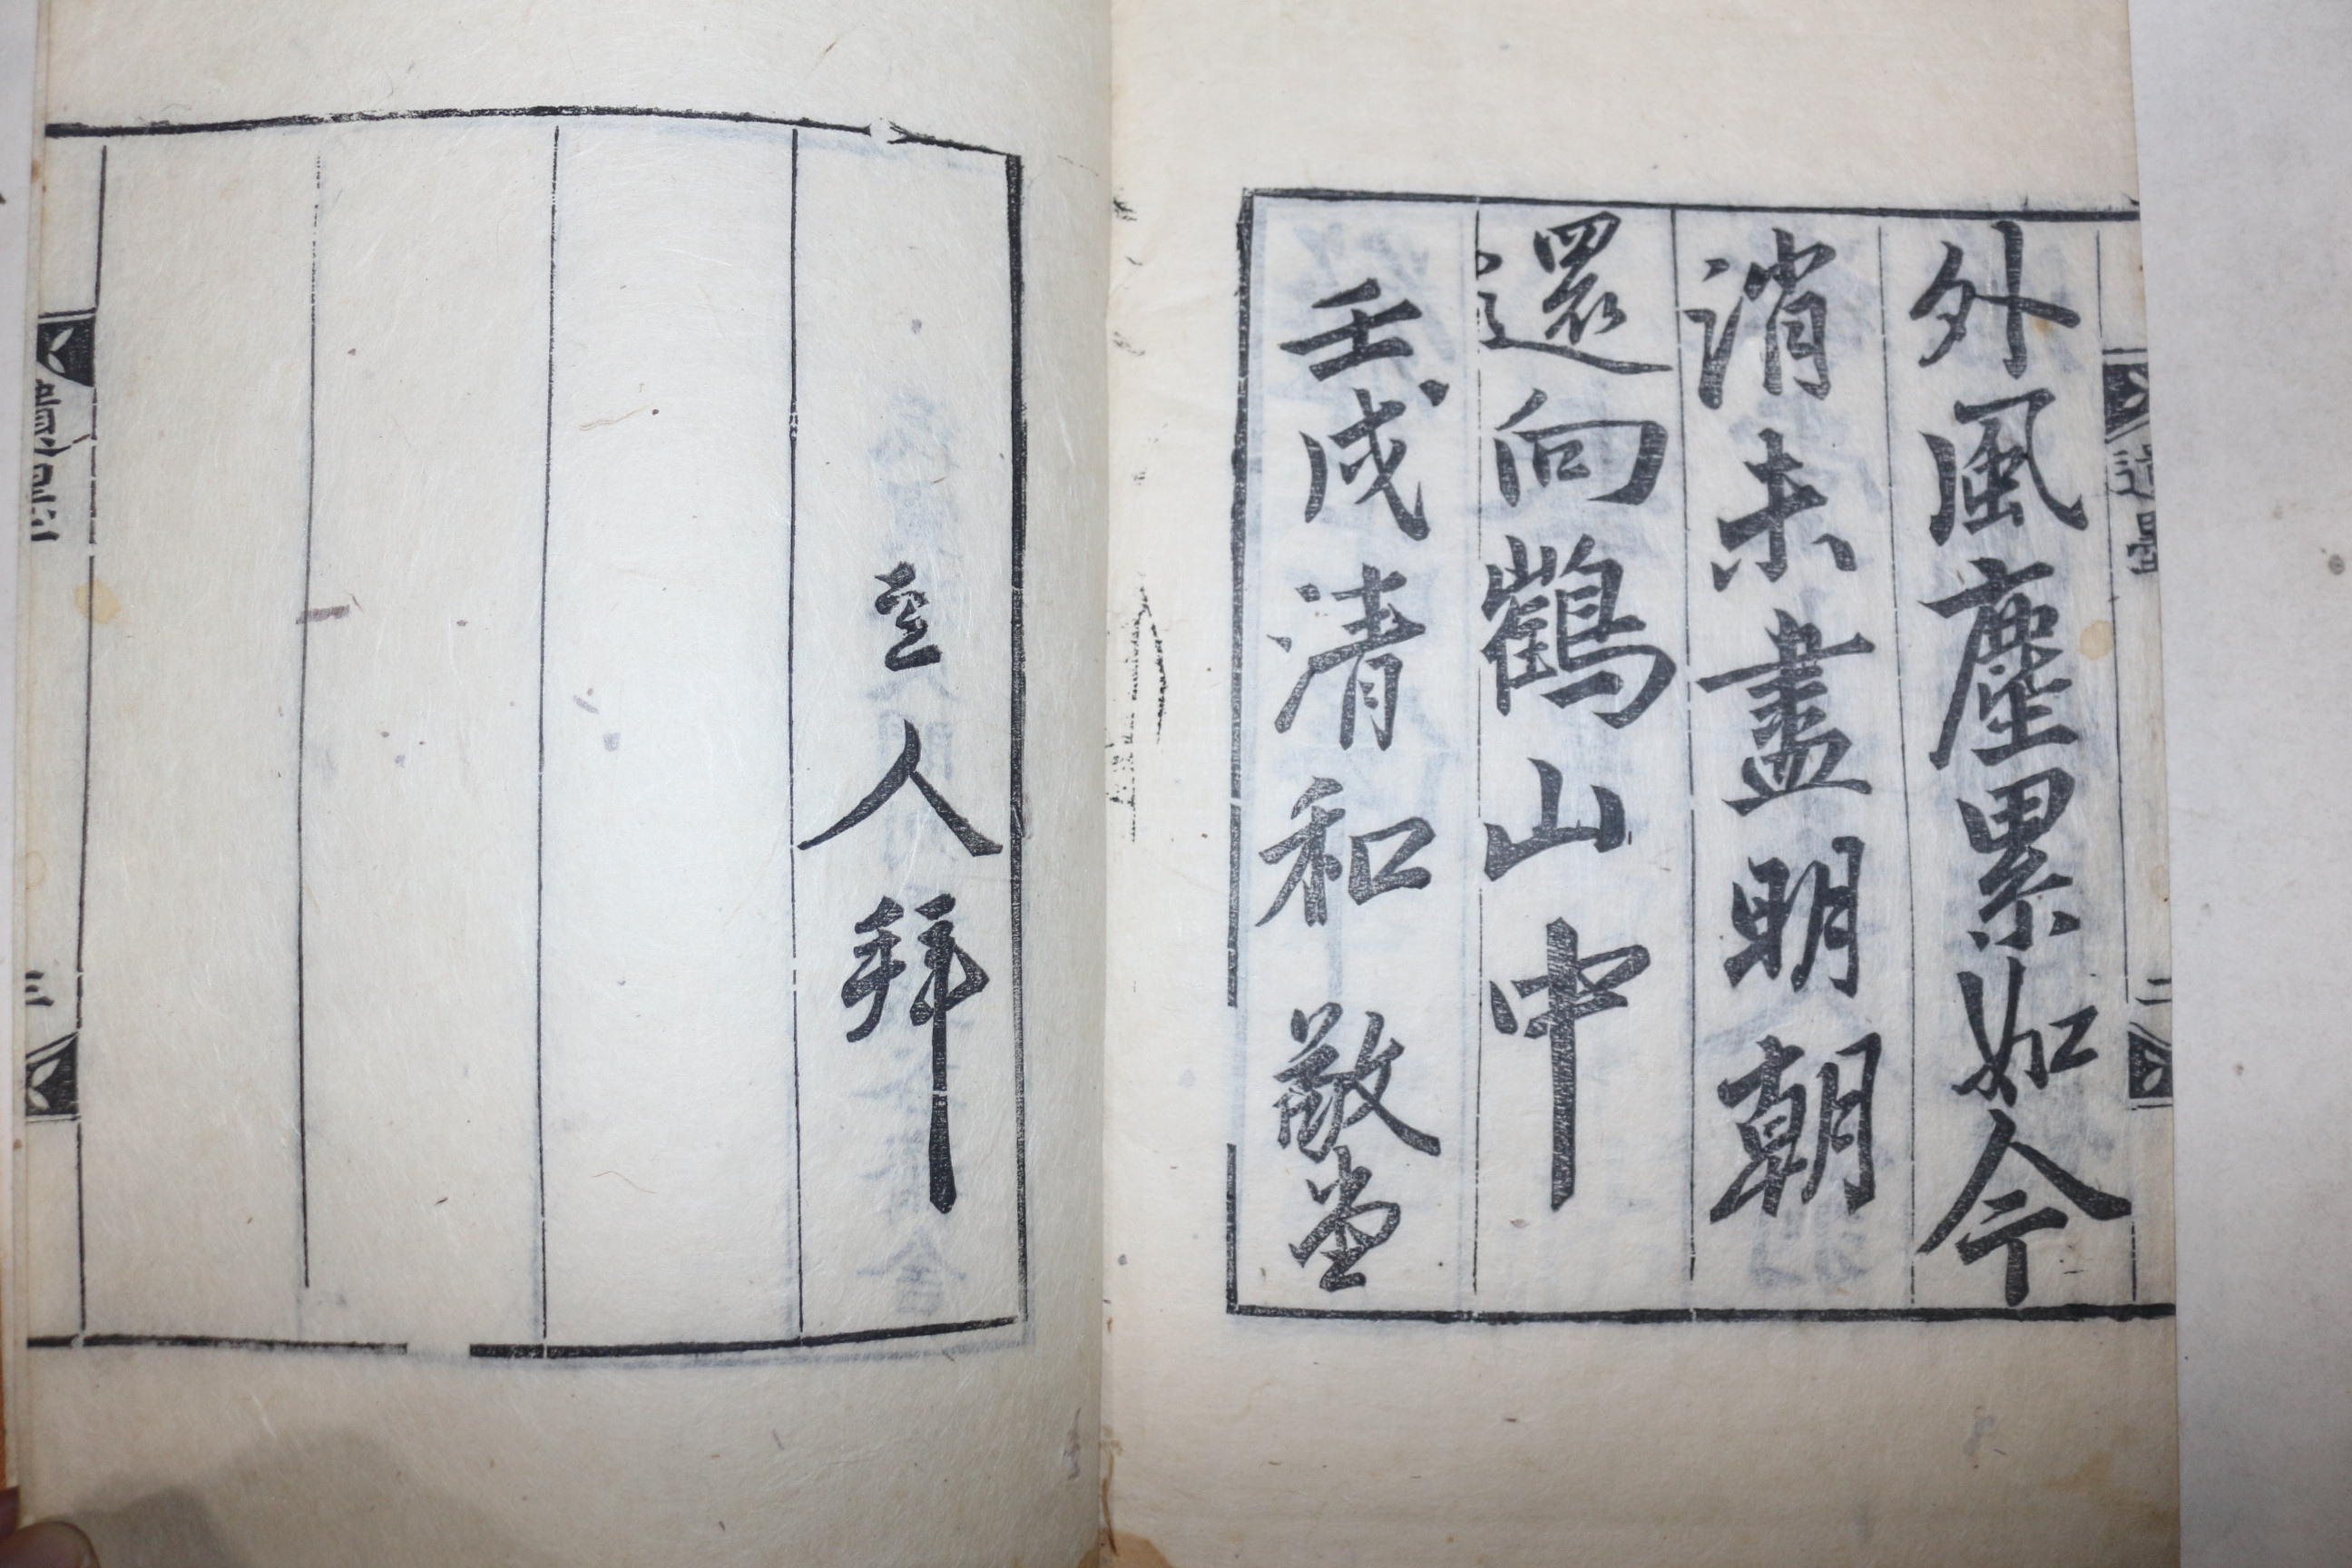 外風塵累如今
消未盡明朝
還向鶴山中
壬戌清和敬堂
主人拜
二
三